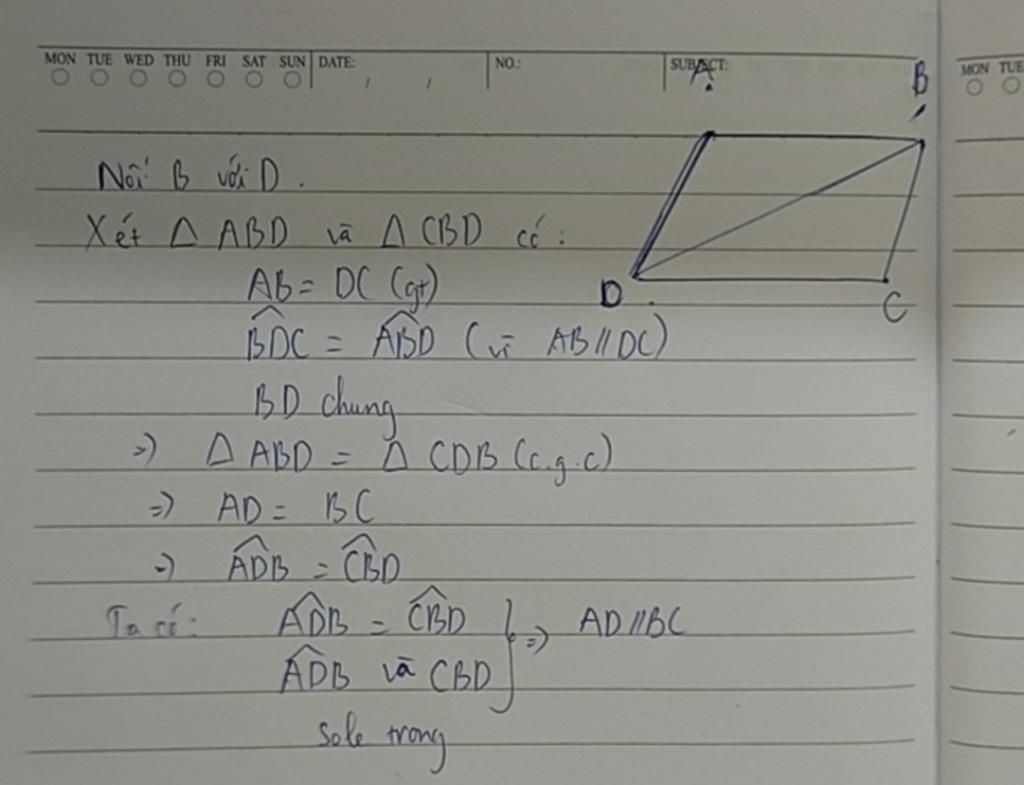 MON TUE WED THU FRI SAT SUN DATE: NO.: SUBJECT: MON TUE
A B
Nối B với D.
Xét Δ ABD và Δ CBD có:
AB = DC (gt)
D C
BDC = ABD (vì AB // DC)
BD chung
=> Δ ABD = Δ CDB (c.g.c)
=> AD = BC
=> ADB = CBD
Ta có: ADB = CBD } => AD // BC
ADB và CBD
sole trong